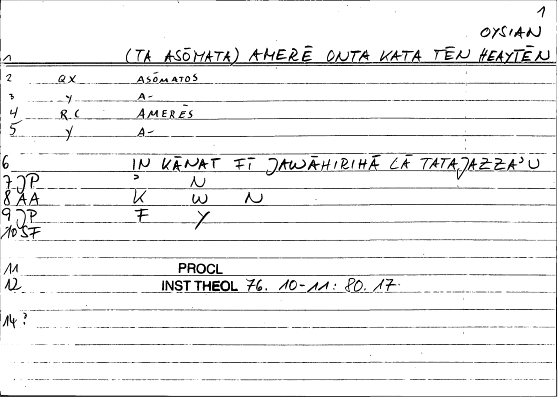 1
OYSIAN
1 (TA ASŌMATA) AMERĒ ONTA KATA TĒN HEAYTĒN
2 QX ASŌMATOS
3 Y A-
4 RC AMERĒS
5 Y A-
6 IN KĀNAT FĪ JAWĀHIRIHĀ LĀ TATAJAZZA'U
7 JP ' N
8 AA K W N
9 JP F Y
10 SF
11 PROCL
12 INST THEOL 76. 10-11: 80. 17.
14 ?